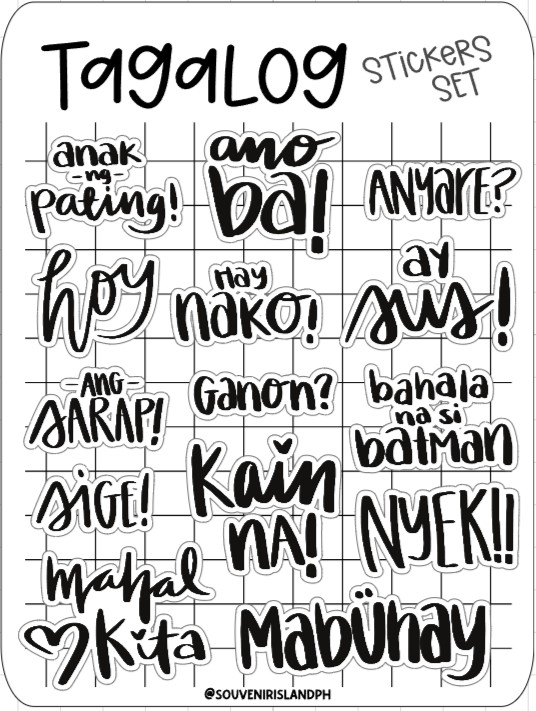 Tagalog
STICKERS
SET
anak
-ng-
pating!
ano
ba!
ANYARE?
hoy
Hay
nako!
ay
sus!
-ANG-
SARAP!
Ganon?
bahala
na si
batman
SIGE!
Kain
nA!
NYEK!!
mahal
Kita
Mabuhay
@SOUVENIRISLANDPH